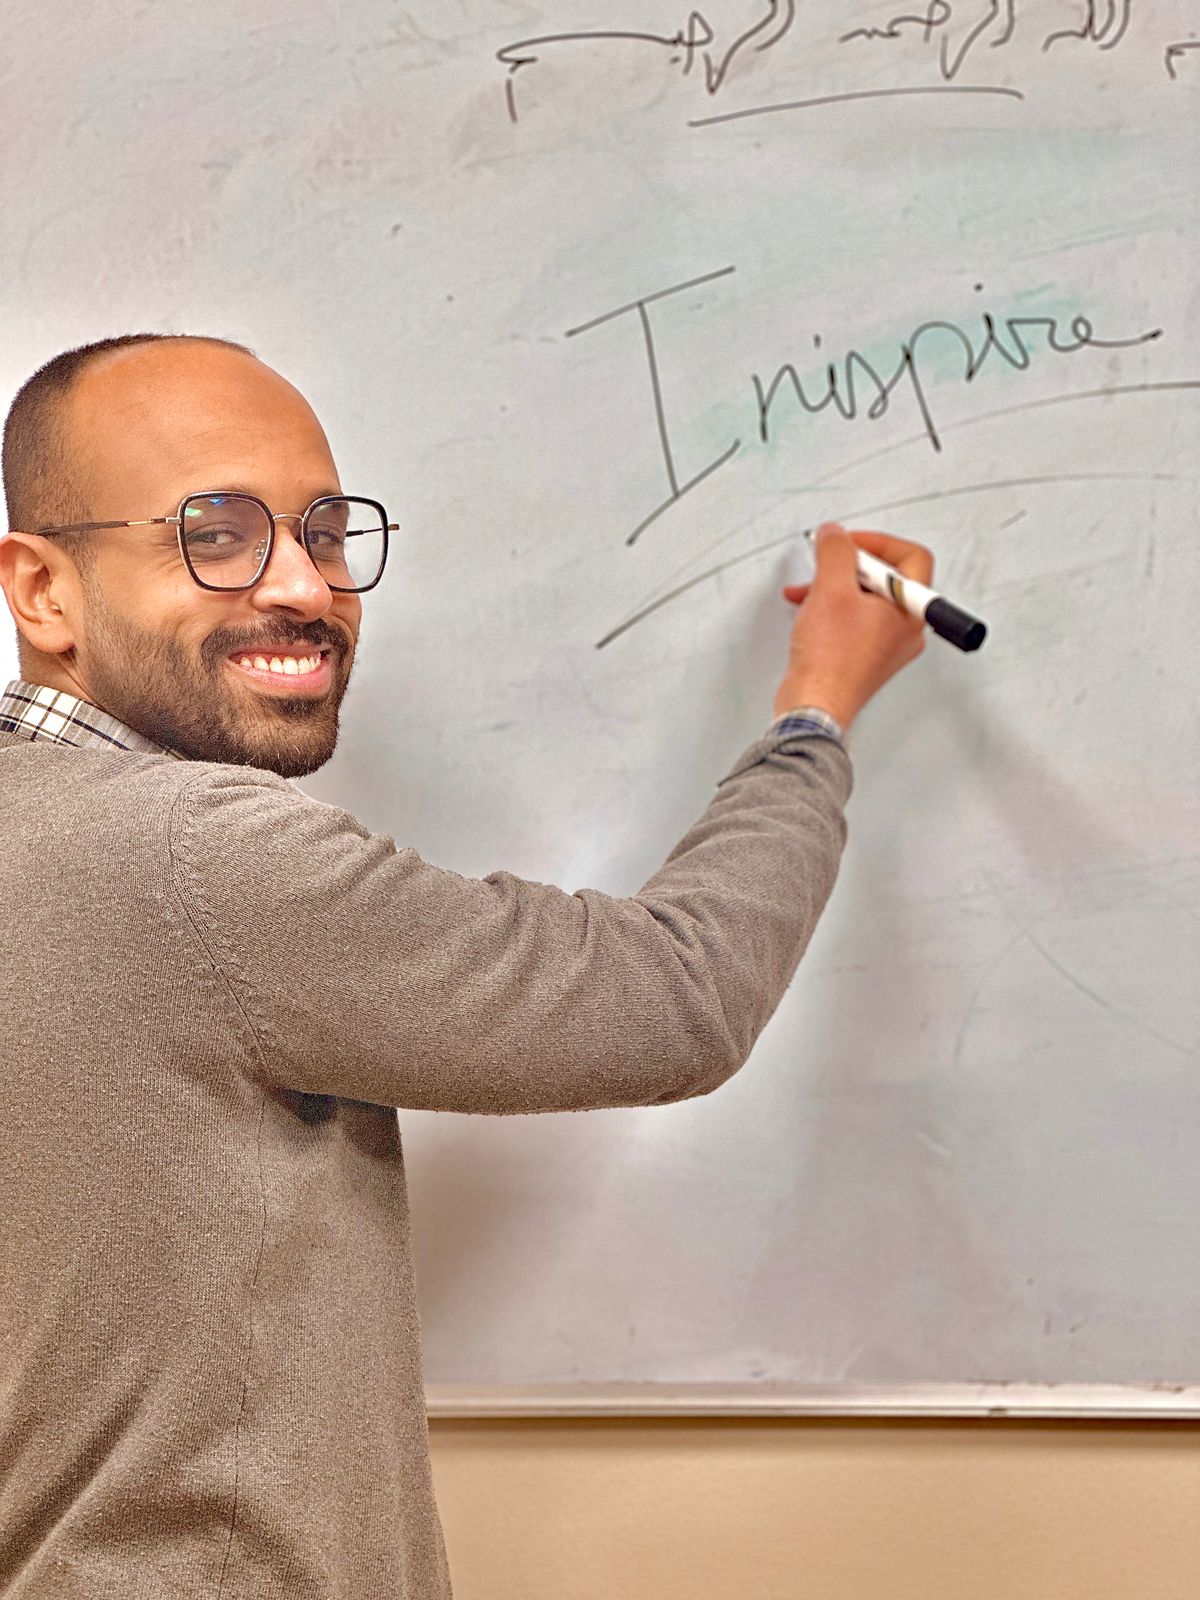 الله الرحمن الرحيم
Inispire